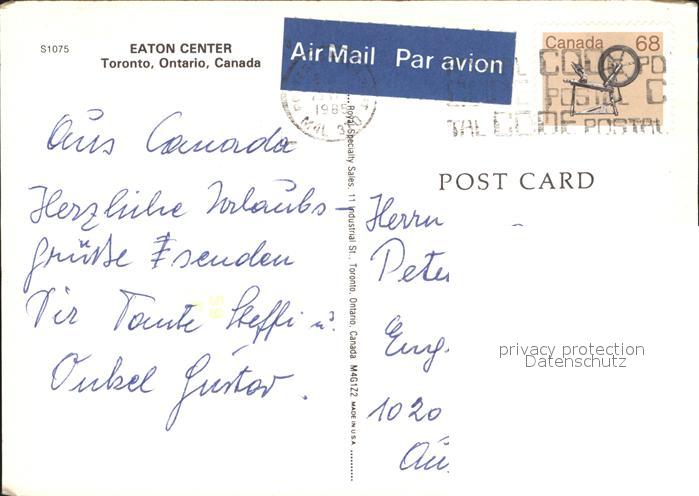 S1075
EATON CENTER
Toronto, Ontario, Canada
Air Mail Par avion
Canada 68
1985
CODE POSTAL
POST CARD
Aus Canada
Herzliche Urlaubs-
grüße senden
Dir Tante Steffi u.
Onkel Gustav.
Royal Specialty Sales, 11 Industrial St., Toronto, Ontario, Canada M4G1Z2 MADE IN U.S.A.
Herrn
Peter
Eng.
1020
privacy protection
Datenschutz